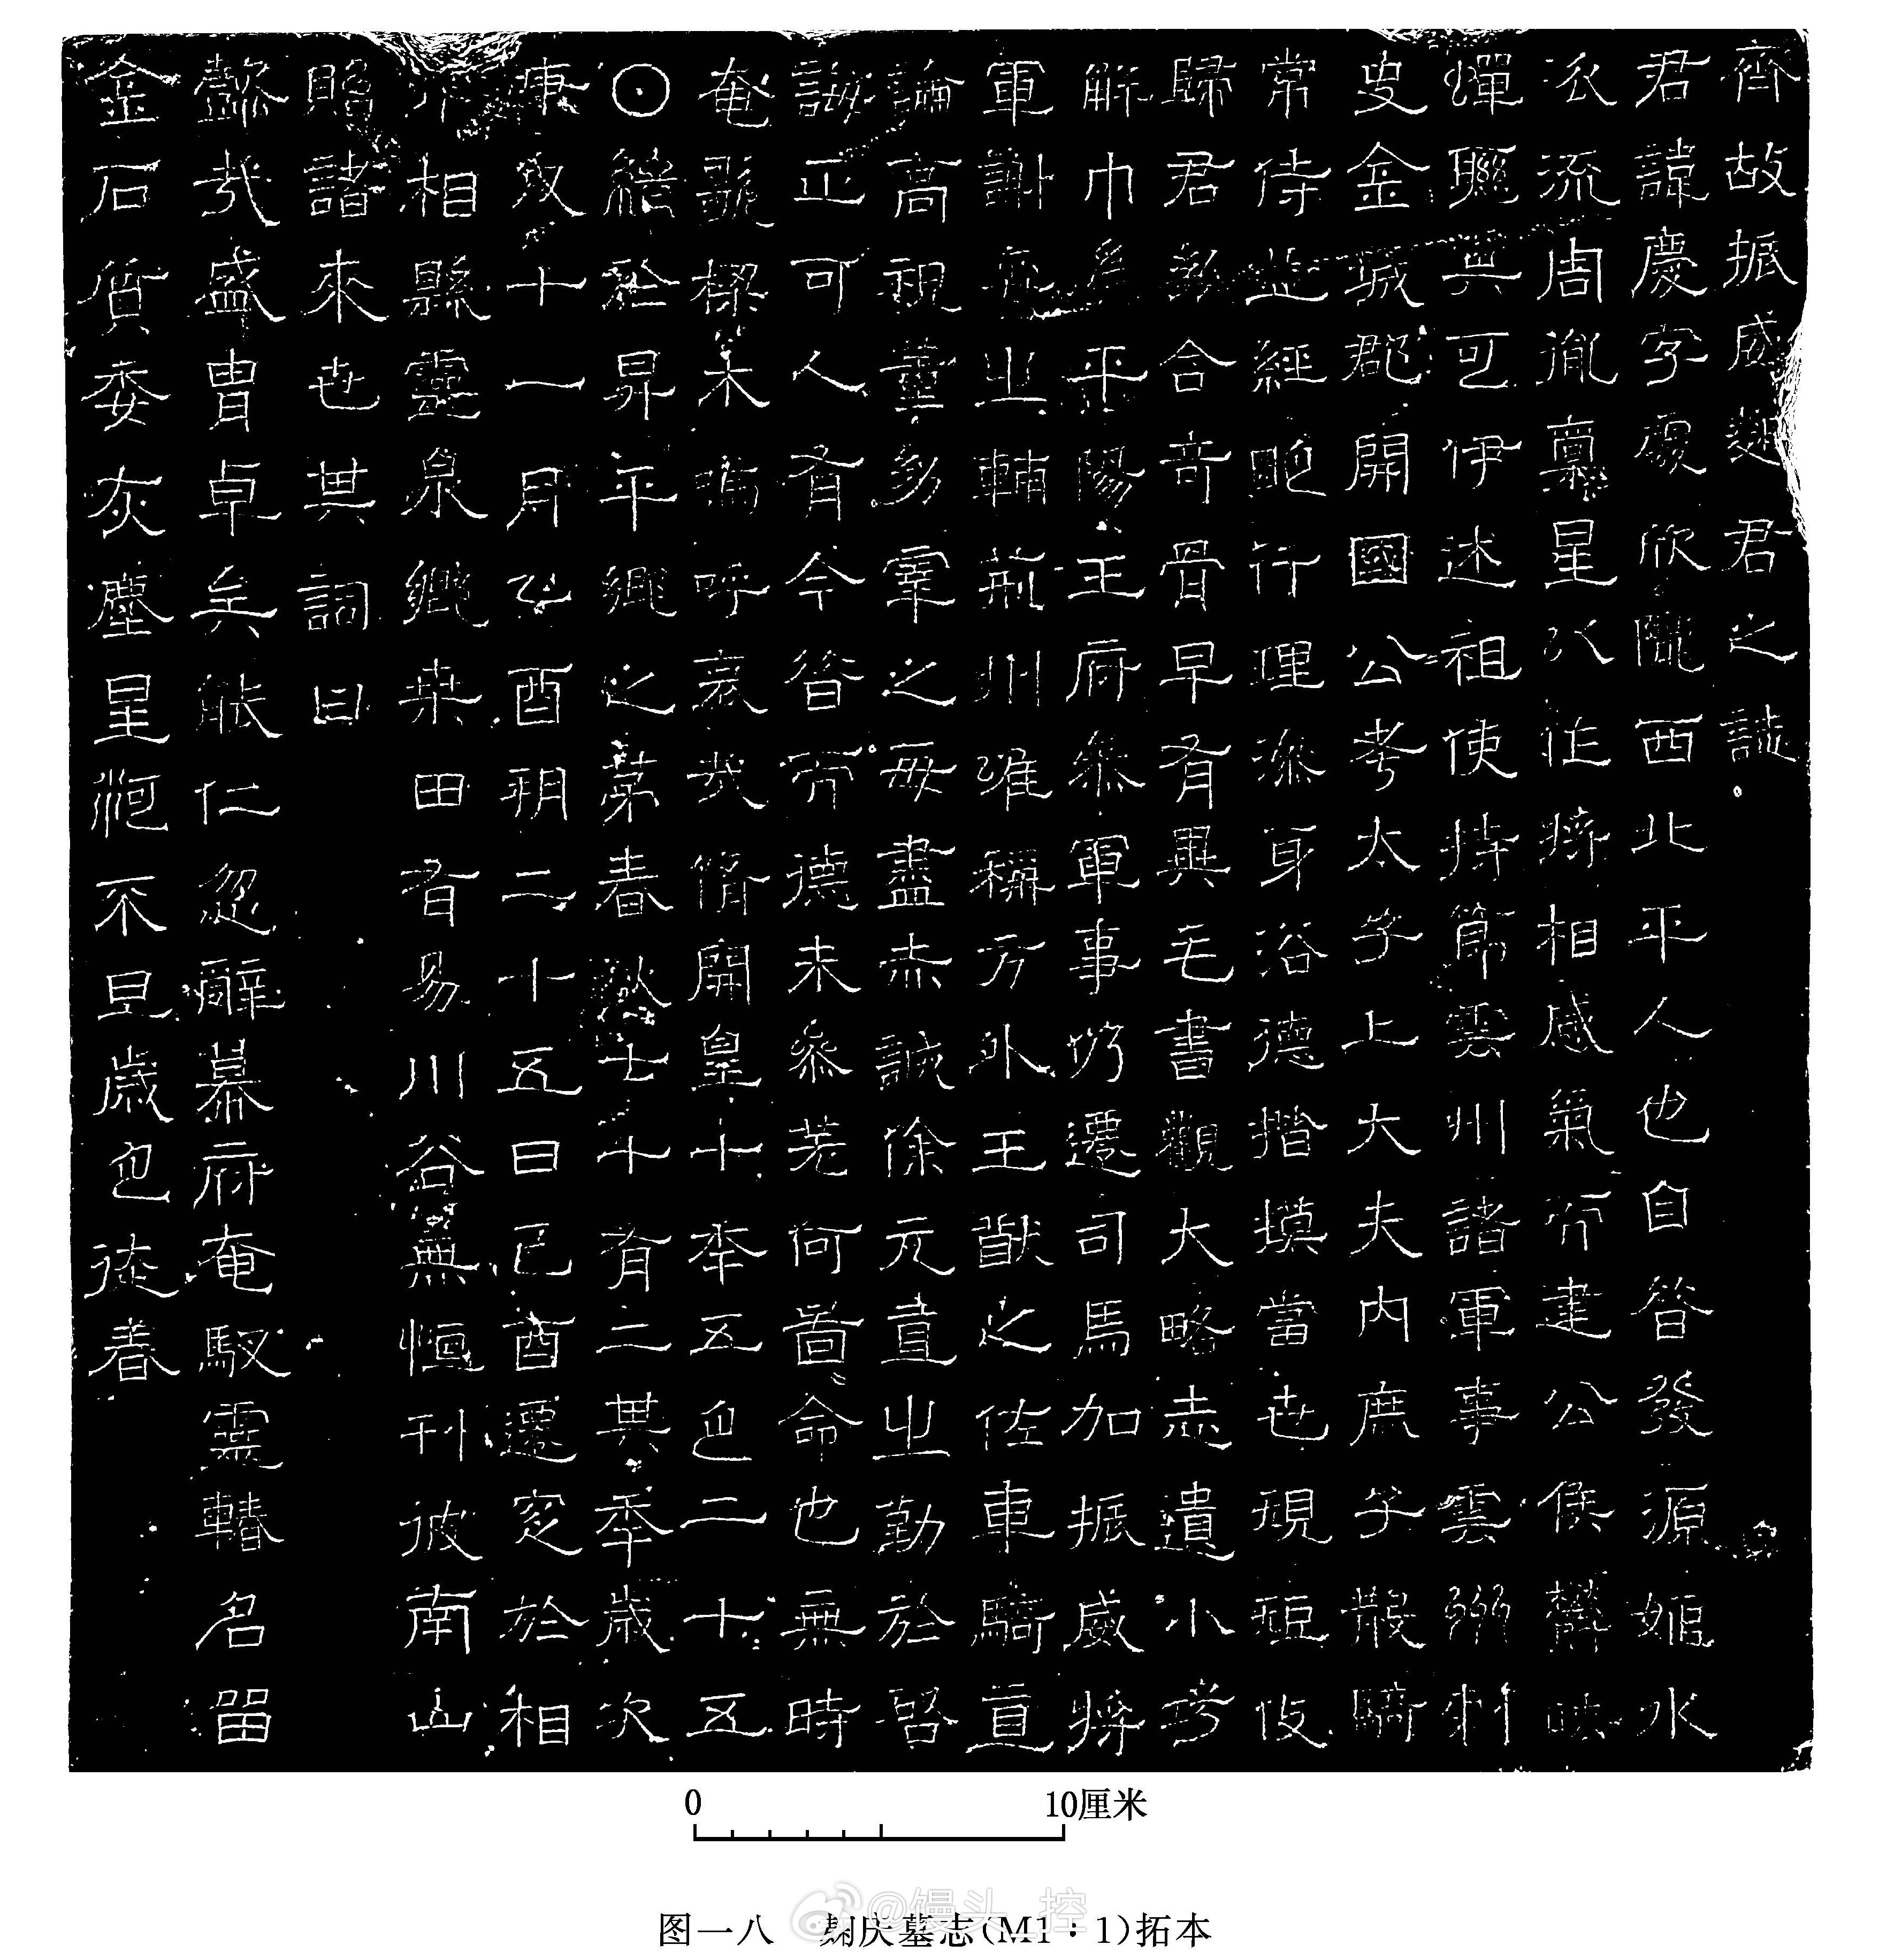 齊故振威麴君之誌
君諱慶字㝬欣隴西北平人也自昝發源姬水
派流周胤慕星以作將相感氣而建公侯欝映
蟬聯其可伊述祖使持節雲州諸軍事雲州刺
史金城郡開國公考太子上大夫内庶子散騎
常侍並經眳行理添身浴德揩摸當世規矩伇
歸君教合奇骨早有異毛書觀大略志遺小巧
解巾為平陽王府叅軍事仍遷司馬加振威將
軍謝玄之輔荊州唯稱方外王猷之佐車騎直
論高視董勒羣之每盡赤誠徐元直之勤於啓
誨正可人有今昝而德未叅差何啚命也無時
奄歌樑木嗚呼哀哉脩開皇十年五年二十五
日終於昇平鄉之第春秋七十有二其年歲次
庚戌十一月乙酉朔二十五日己酉遷窆於相
州相縣靈泉鄉桒田有易川谷無恒刊彼南山
貽諸來世其詞曰
懿哉盛胄卓矣能仁忽辭幕府奄馭靈輴名留
金石質委灰塵星池不見歲色徒春
0 10厘米
@馒头_控
图一八 麹庆墓志(M1：1)拓本